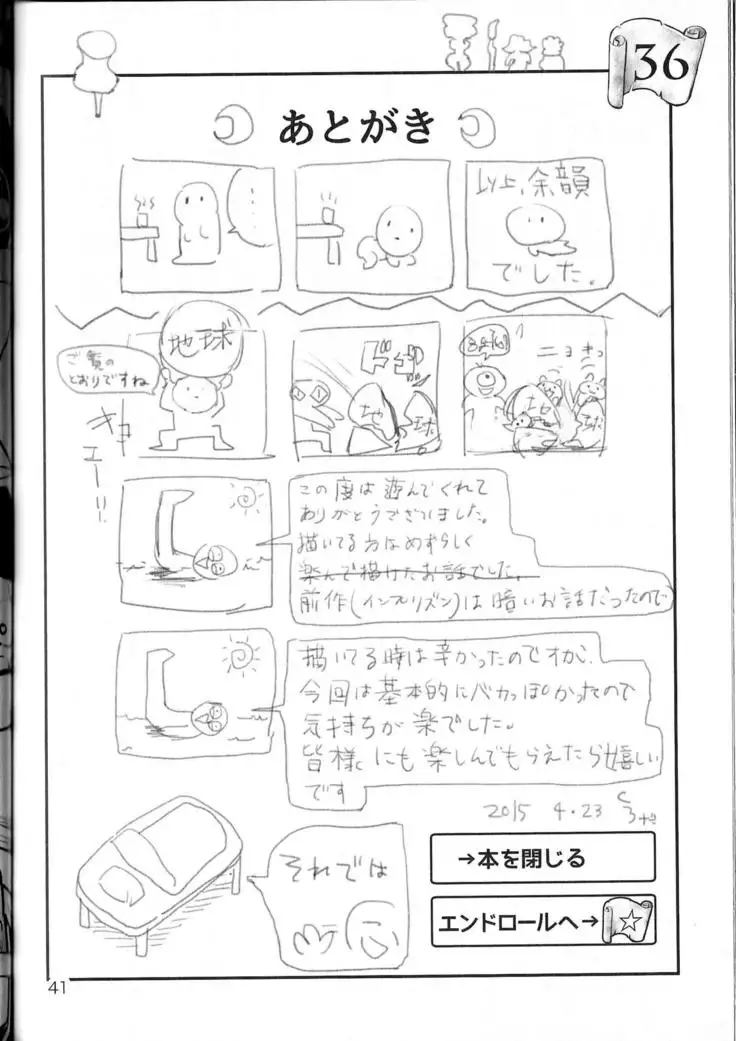 36
あとがき
・・・
以上、余韻
でした。
地球
ご覧の
とおりですね
キョエーー!!
地
球
ニョキッ
地
球
この度は遊んでくれて
ありがとうございました。
描いてる方はめずらしく
楽んで描けたお話でした。
前作(インプリズン)は暗いお話だったので
描いてる時は辛かったのですが、
今回は基本的にバカっぽかったので
気持ちが楽でした。
皆様にも楽しんでもらえたら嬉しい
です
2015 4・23
それでは
→本を閉じる
エンドロールへ→
41